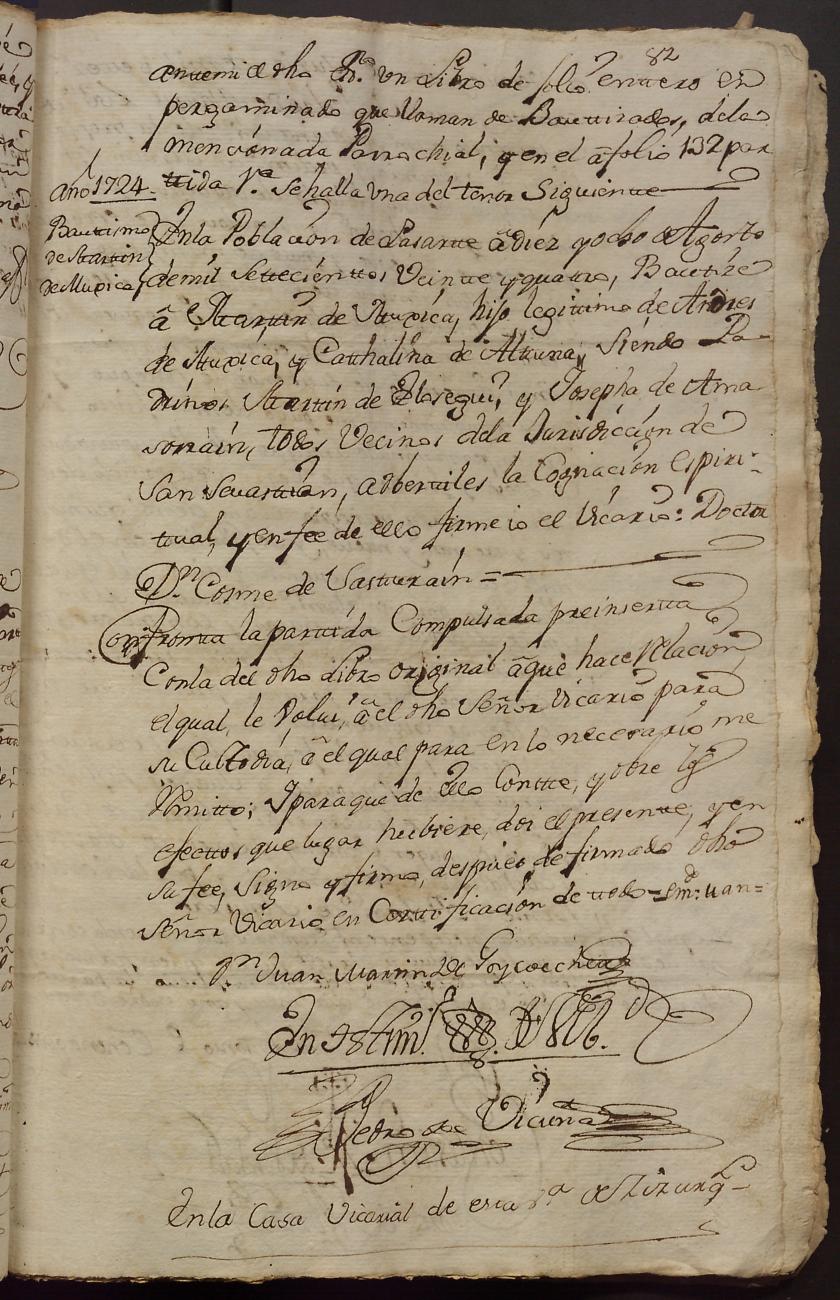 82
ante mi el dho Es.no un Libro de folio entero en
pergaminado que llaman de Bautizados, dela
mencionada Parrochial, y en el â folio 132 par
año 1724. tida 1.a se halla una del tenor Siguiente
Bautismo
de Martin
de Muxica
En la Poblacion de Lasarte â diez y ocho de Agosto
de mil Settecienttos Veinte y quatro, Bautize
â Martin de Muxica, hijo legitimo de Andres
de Muxica, y Cathalina de Altuna, Siendo Pa-
drinos Martin de Elosegui, y Josepha de Ama
sorrain, todos Vecinos dela Jurisdiccion de
San Sevastian, adberti les la Cognacion Espiri-
tual, y en fee de ello firme io el Vicario: Doctor
D.n Cosme de Sasturain =
Confronta la partida Compulsada preinserta
Con la del dho Libro original â que hace Relacion
el qual, le Volvi, â el dho Señor Vicario para
su Custodia, â el qual para en lo necesario me
Remitto; Y para que de ello Contte, y obre los
efectos que lugar hubiere, doi el presente, y en
su fee, Signo y firmo, despues de firmado dho
Señor Vicario en Certificacion de todo = em.do: uan =
D.n Juan Martin de Goycoechea
En testim.o de Verd.
Pedro de Vicuña
En la Casa Vicarial de esta V.a de Lizarg-